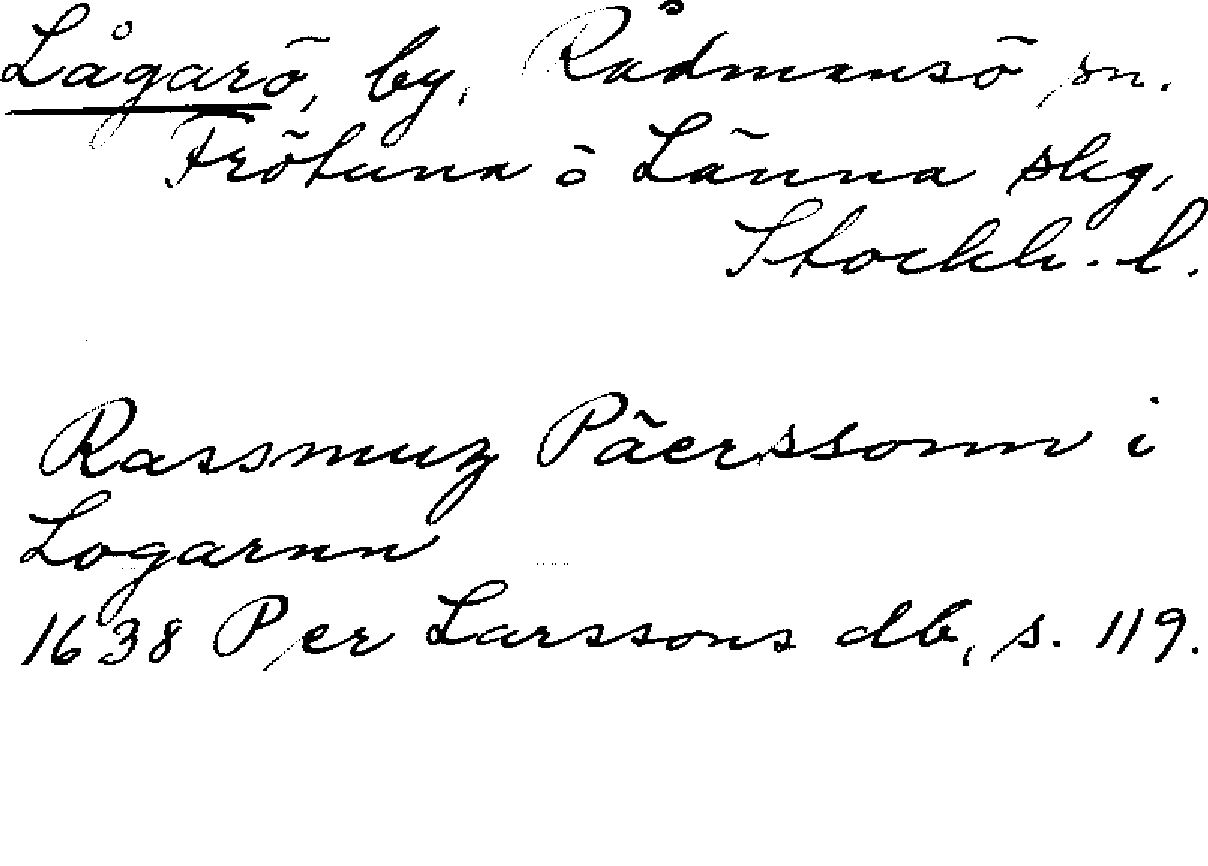 Lågarö, by, Rådmansö sn.
Frötuna o Länna slg,
Stockh. l.
Rassmuz Päerssonn i
Logarnn
1638 Per Larssons db, s. 119.